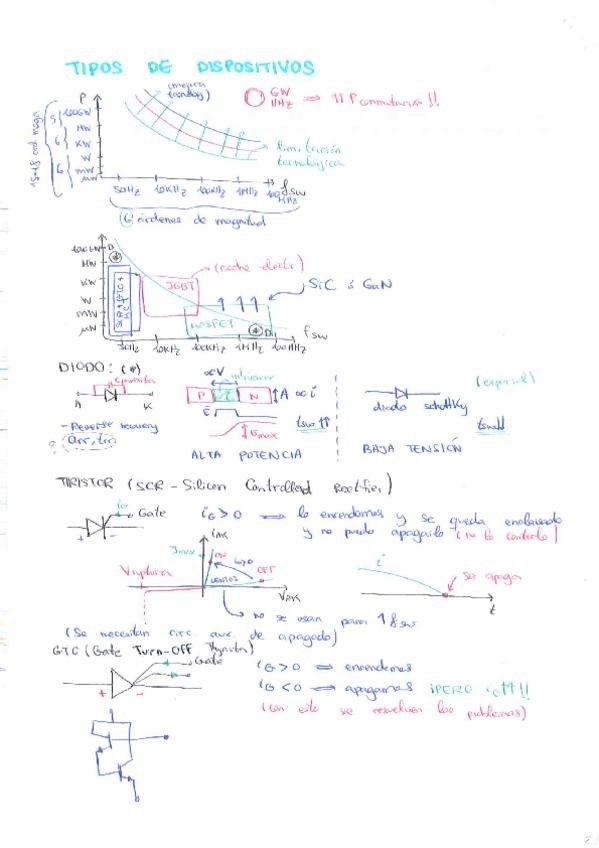 TIPOS DE DISPOSITIVOS
P
(mejora tecnolog)
GW
MHz ⇒ ↑↑ Pconmutación!!
15-18 ord. magn
5
6
6
100GW
MW
KW
W
mW
μW
limitación
tecnológica
50Hz 10KHz 100KHz 1MHz 100MHz
fsw
6 órdenes de magnitud
P
10KGW
MW
KW
W
mW
μW
SCR+GTO+
IGBT
(coche electr)
SiC ó GaN
MOSFET
fsw
50Hz 10KHz 100KHz 1MHz 100MHz
DIODO: (*)
A K
- Reverse recovery
Qrr, trr
∝V
intrínseco
P i N
A ∝ i
E
Vmax
tsw ↑↑
ALTA POTENCIA
(especial)
diodo schottky
tsw↓↓
BAJA TENSIÓN
TIRISTOR (SCR - Silicon Controlled Rectifier)
iG
Gate
+ -
iG>0 ⇒ lo encendemos y se queda enclavado
y no puedo apagarlo (no lo controlo)
iAK
Imax
ON
iG>0
OFF
Vruptura
VAK
no se usan para ↑fsw
i
se apaga
t
(Se necesitan circ aux de apagado)
GTO (Gate Turn-Off Thyristor)
Gate
+ -
iG>0 ⇒ encendemos
iG<0 ⇒ apagamos ¡PERO iG↑↑!!
(con esto se resuelven los problemas)